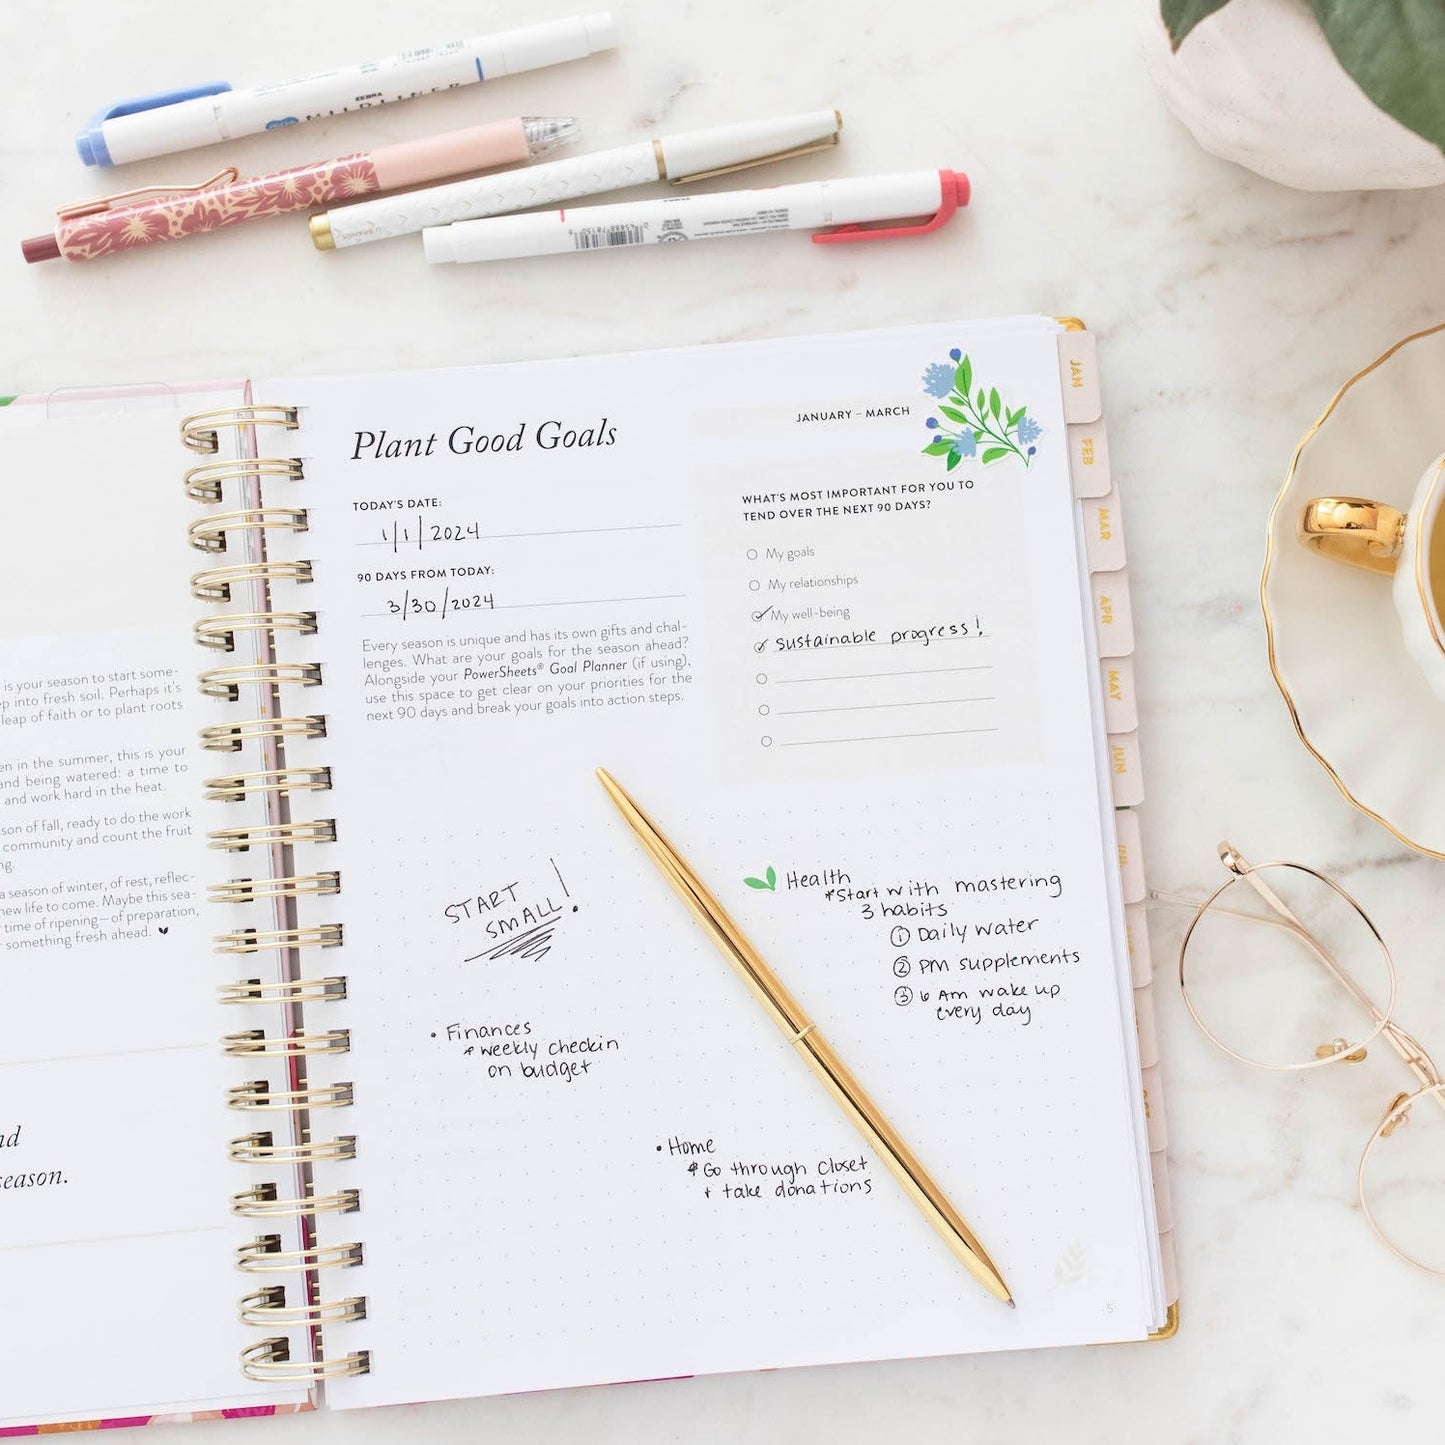 ZEBRA
MILDLINER
JANUARY – MARCH
Plant Good Goals
TODAY'S DATE:
1/1/2024
90 DAYS FROM TODAY:
3/30/2024
Every season is unique and has its own gifts and chal-
lenges. What are your goals for the season ahead?
Alongside your PowerSheets® Goal Planner (if using),
use this space to get clear on your priorities for the
next 90 days and break your goals into action steps.
WHAT'S MOST IMPORTANT FOR YOU TO
TEND OVER THE NEXT 90 DAYS?
My goals
My relationships
My well-being
sustainable progress!
START
SMALL!
Health
*Start with mastering
3 habits
① Daily water
② PM supplements
③ 6 AM wake up
every day
• Finances
* weekly checkin
on budget
• Home
* Go through closet
+ take donations
5
JAN
FEB
MAR
APR
MAY
JUN
is your season to start some-
into fresh soil. Perhaps it's
leap of faith or to plant roots
in the summer, this is your
and being watered: a time to
and work hard in the heat.
of fall, ready to do the work
community and count the fruit
a season of winter, of rest, reflec-
new life to come. Maybe this sea-
time of ripening—of preparation,
something fresh ahead.
season.